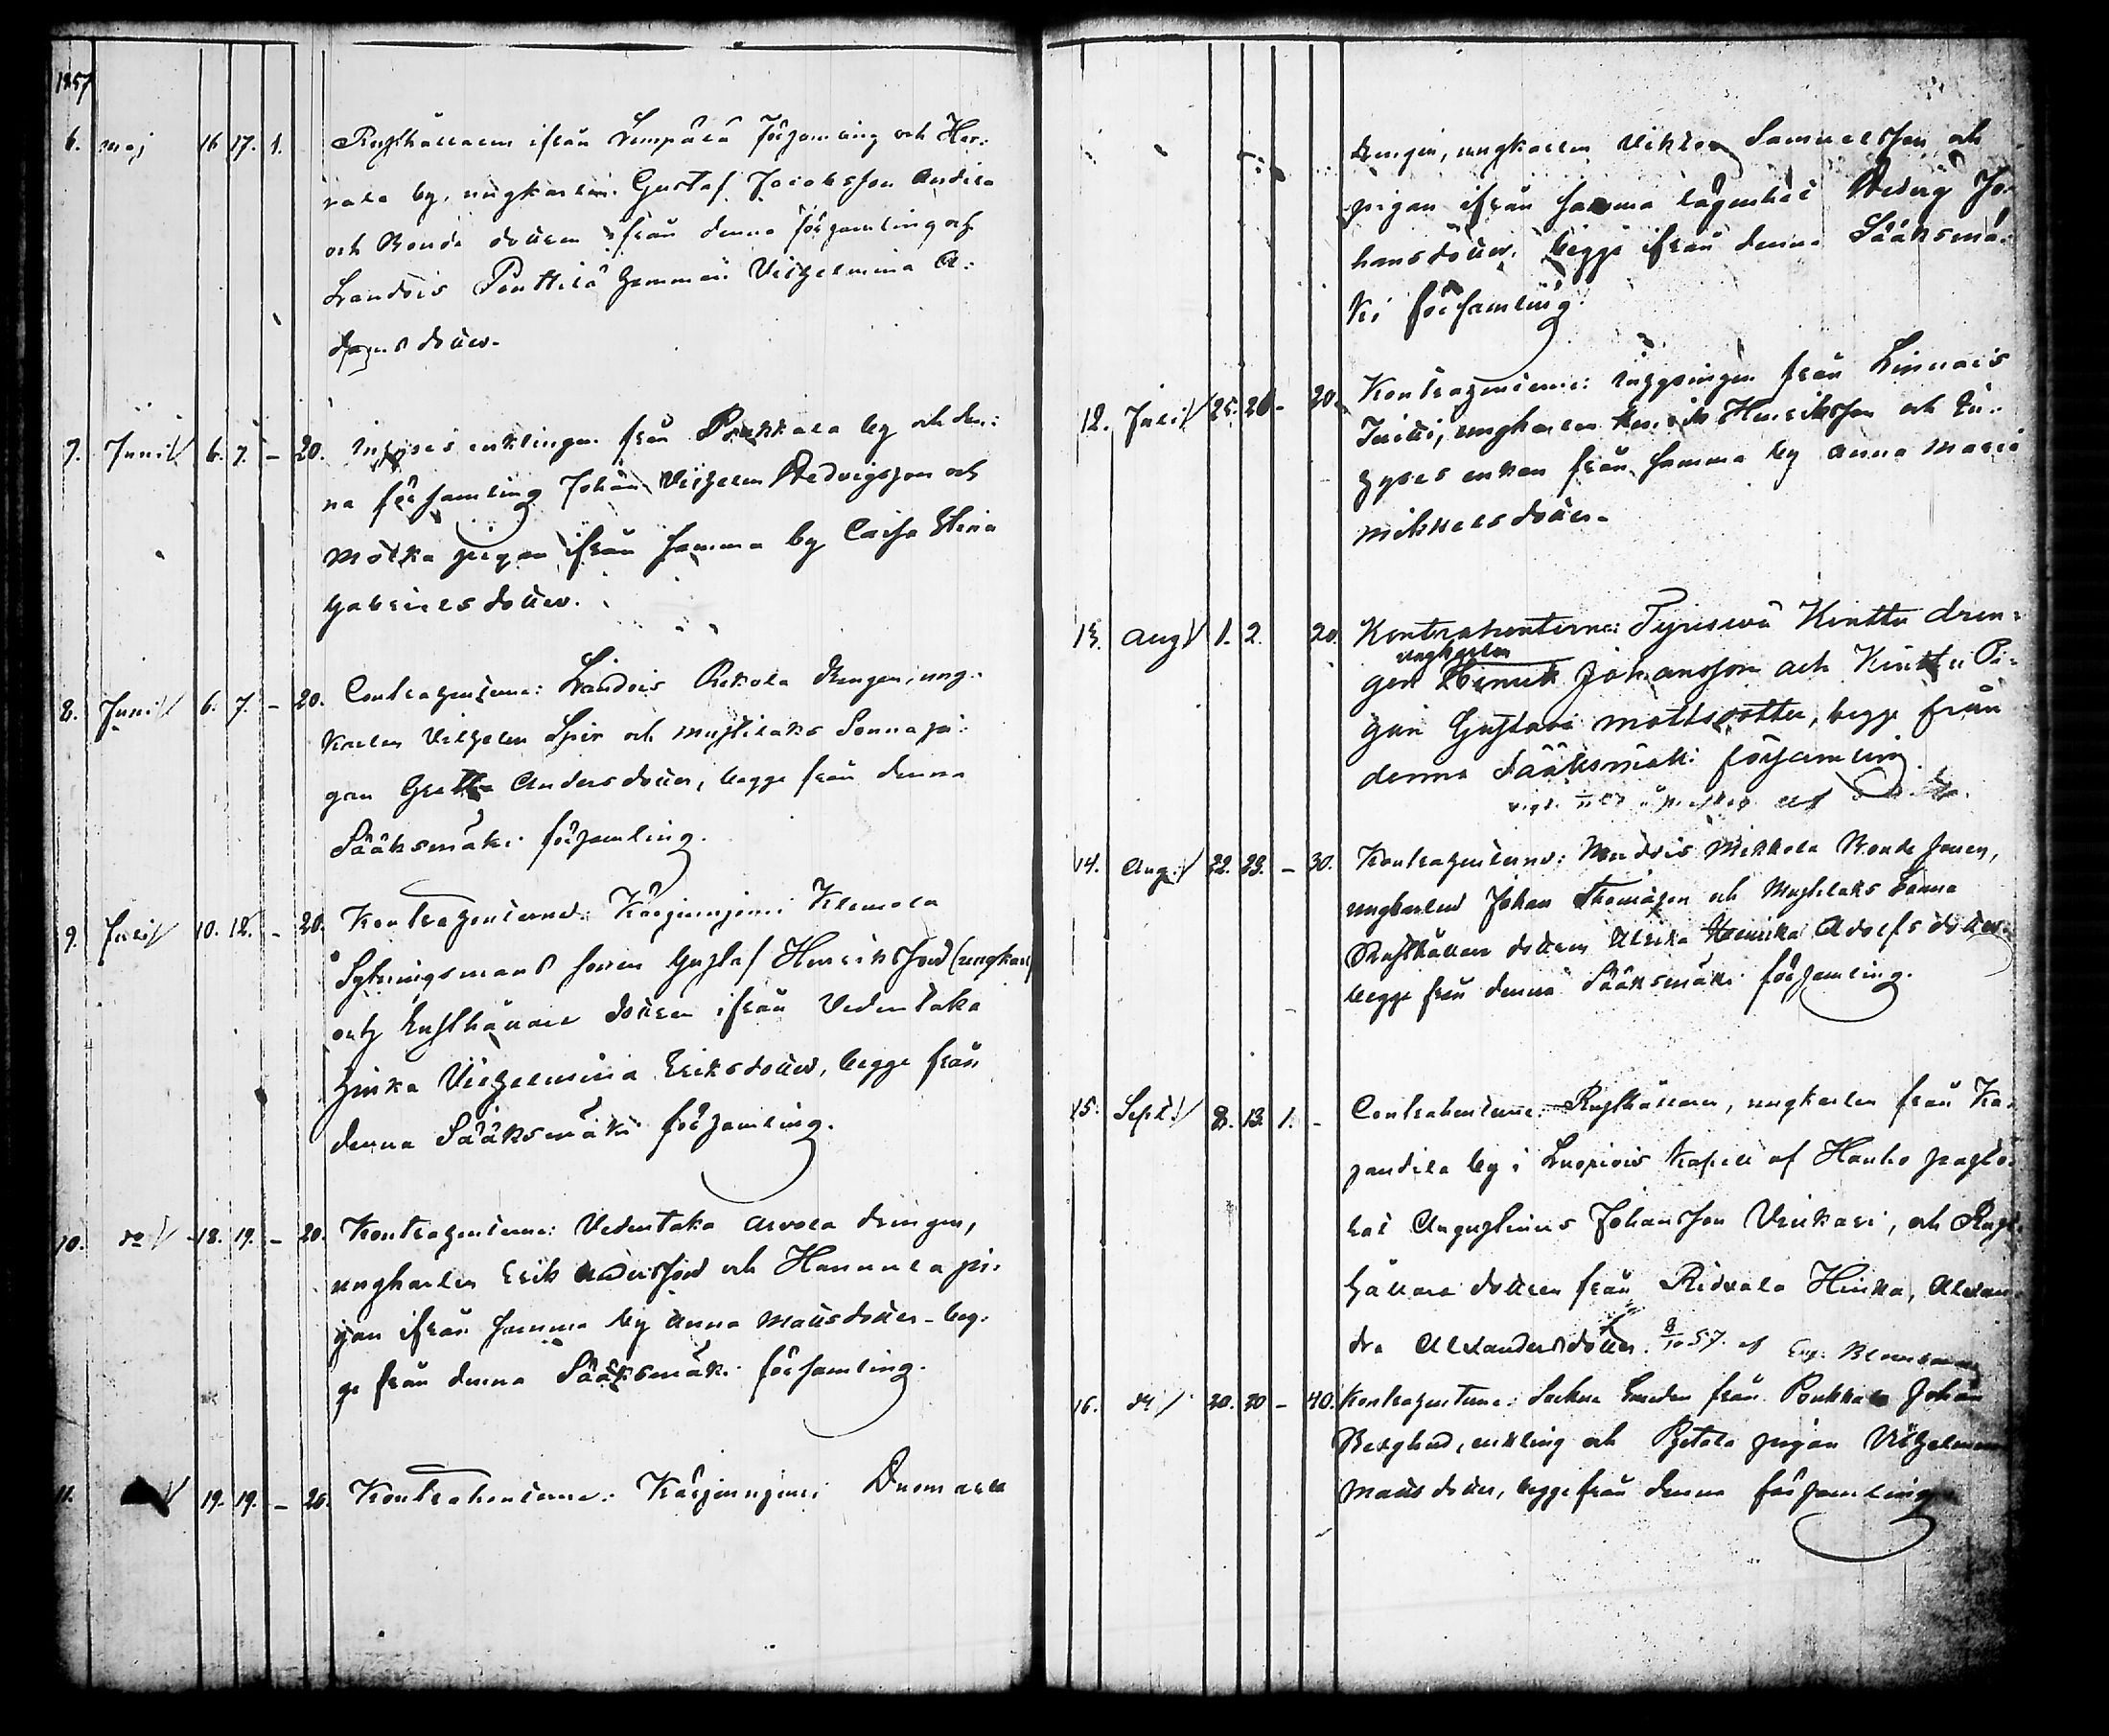 1857
6. maj 16 17. 1. Rusthållaren ifrån Lempälä Församling och Her-
rala by, ungkarlen Gustaf Jacobsson Andila
och Bonde dottren ifrån denna församling och
Landois Penttilä hemman Vilhelmina A-
damsdotter.
7. Junii 6. 7. – 20. Inhyses enklingen från Pohkkala by och den-
na församling Johan Vilhelm Hedvigsson och
Mötka pigan ifrån samma by Caisa Stina
Gabrielsdotter.
8. Junii 6. 7. – 20. Contragenterne: Landois Rekola drengen, ung-
karlen Vilhelm Spir och Mustilaks Sonna pi-
gan Greta Andersdotter, begge från denna
Sääksmäki församling.
9. Julii 10. 12. – 20. Kontragenterne: Kärjenniemi Klemola
Sytningsmans sonen Gustaf Henriksson (ungkarl)
och Rusthållare dottren ifrån Vedentaka
Hinka Vilhelmina Eriksdotter, begge från
denna Sääksmäki församling.
10. do 18. 19. – 20. Kontragenterne: Vedentaka Arvola drengen,
ungkarlen Erik Andersson och Hannula pi-
gan ifrån samma by Anna Mattsdotter – beg-
ge från denna Sääksmäki församling.
11. 19. 19. – 20. Kontrahenterne: Kärjenniemi
drengen, ungkarlen Viktor Samuelsson och
pigan ifrån samma lägenhet Hedvig Jo-
hansdotter. begge ifrån denna Sääksmä-
ki församling.
12. Julii 25. 26 – 20. Kontragenterne: Inhysingen från Linnais
ungkarlen Henrik Henriksson och In-
hyses enkan från samma by Anna Maria
Mikkelsdotter.
13. Aug 1. 2. 20. Kontrahenterne: Tyrisevä Kinttu dren-
ungkarlen
gen Henrik Johansson och Kinttu Pi-
gan Gustava Mattsdotter, begge från
denna Sääksmäki församling.
14. Aug: 22. 23. – 30. Kontragenterne: Mikkola Bonde sonen,
ungkarlen Johan Thomasson och Mustilaks Sonna
Rusthållare dottren Ulrika Henrika Adolfsdotter
begge från denna Sääksmäki församling.
15. Sept: 8. 13. 1. – Contrahenterne: Rusthållaren, ungkarlen från Ka-
by i Luopiois Kapell af Hauho pasto-
rat Augustinus Johansson Uukari, och Rust-
hållare dottren från Ridvala Hinka, Alexan-
dra Alexandersdotter. 8/10 57. af
16. do 20. 20 – 40. Kontragenterne: Sockne Smeden från Pohkkala Johan
Berglund, enkling och pigan Vilhelmina
Mattsdotter, begge från denna församling